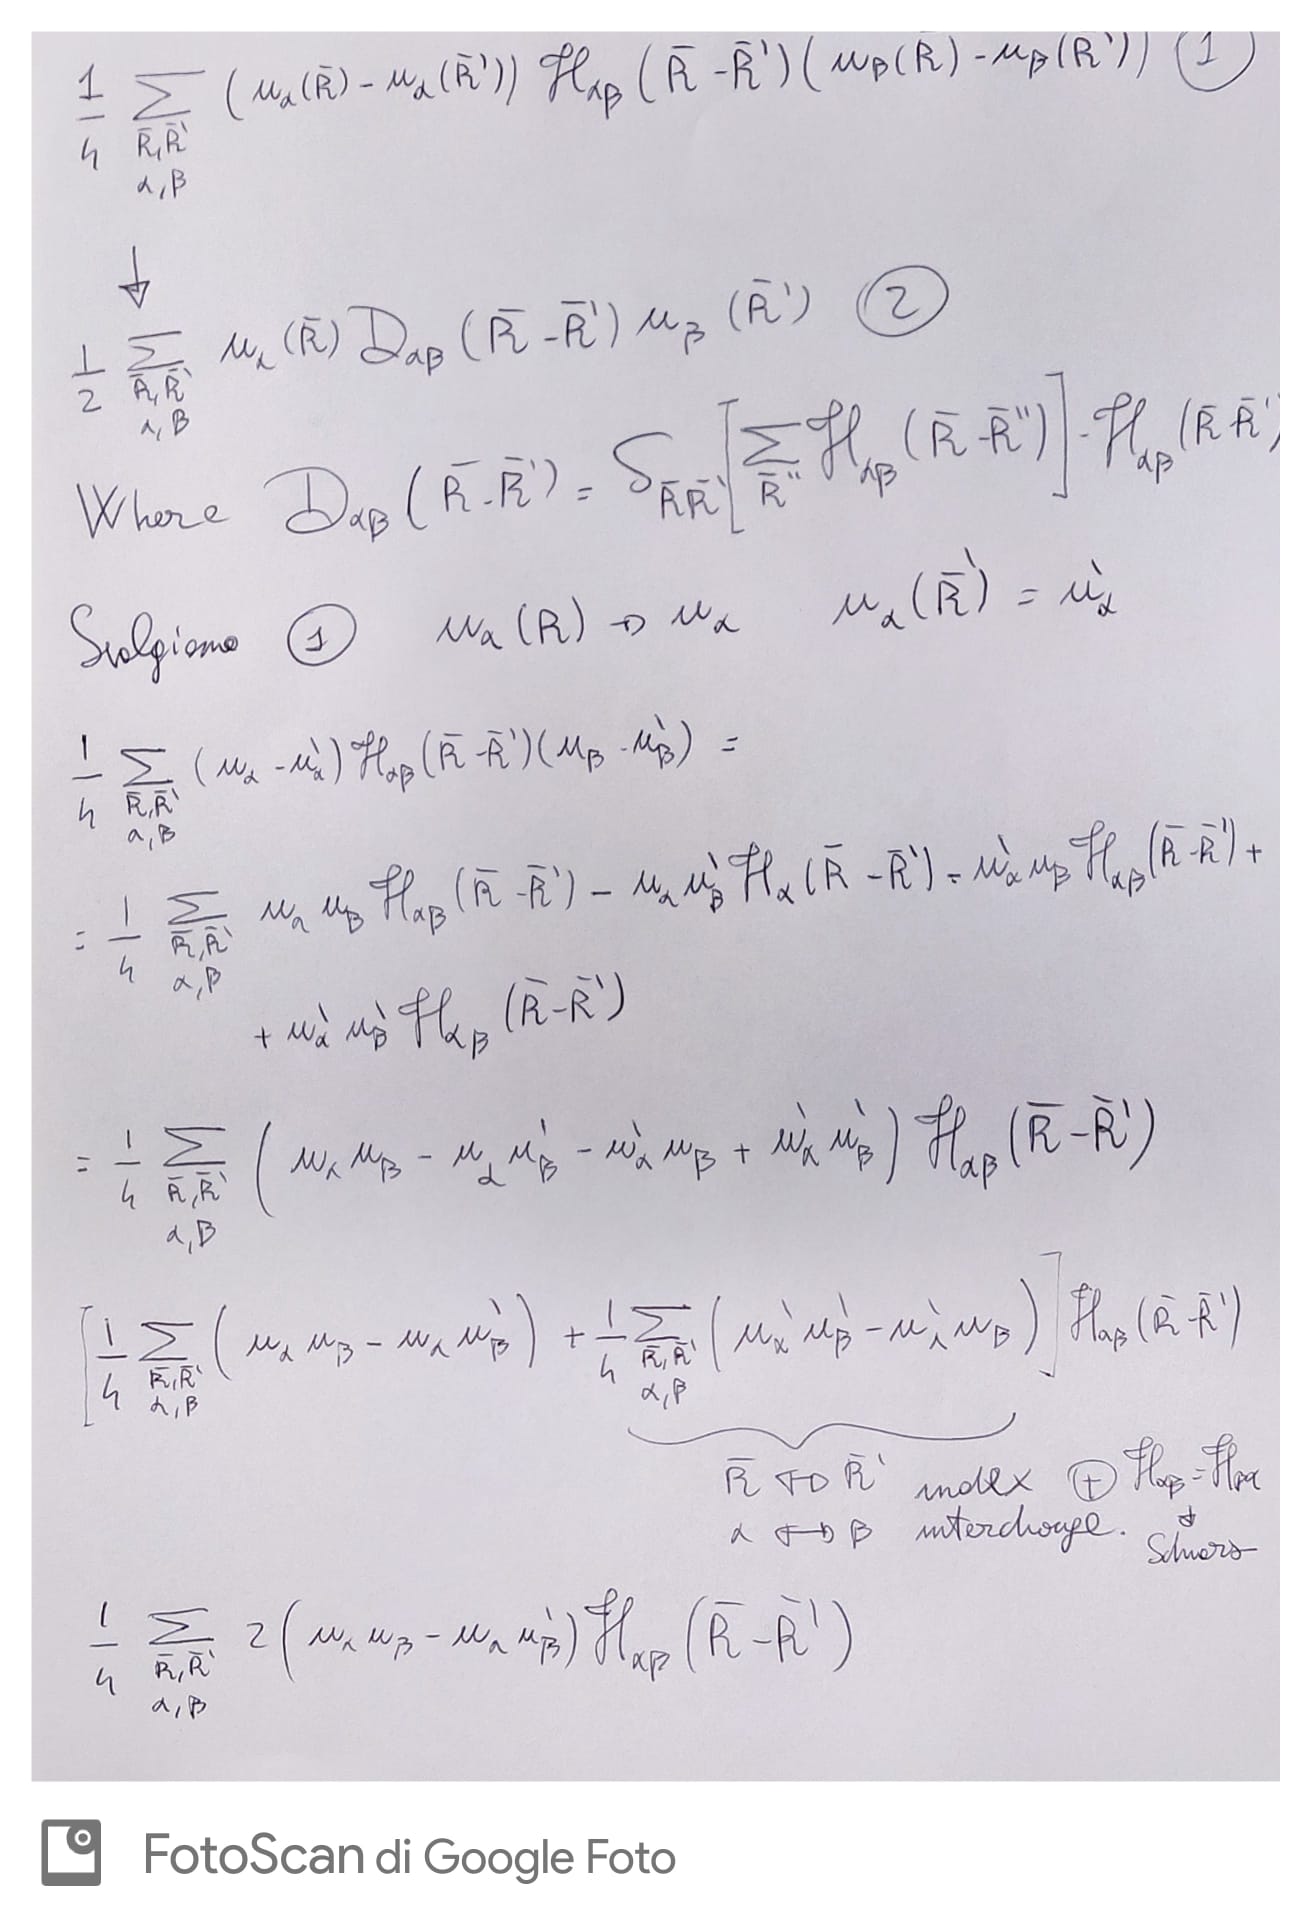 1/4 Σ_{R̄,R̄' α,β} (u_α(R̄) - u_α(R̄')) ℋ_αβ (R̄ - R̄') (u_β(R̄) - u_β(R')) ①
↓
1/2 Σ_{R̄,R̄' α,β} u_α(R̄) D_αβ (R̄ - R̄') u_β (R̄') ②
Where D_αβ (R̄ - R̄') = δ_{R̄R̄'} [Σ_{R̄''} ℋ_αβ (R̄ - R̄'')] - ℋ_αβ (R̄ R̄')
Svolgiamo ① u_α(R) → u_α u_α(R̄') = u'_α
1/4 Σ_{R̄,R̄' α,β} (u_α - u'_α) ℋ_αβ (R̄ - R̄')(u_β - u'_β) =
= 1/4 Σ_{R̄,R̄' α,β} u_α u_β ℋ_αβ (R̄ - R̄') - u_α u'_β ℋ_α (R̄ - R̄') - u'_α u_β ℋ_αβ (R̄ - R̄') +
+ u'_α u'_β ℋ_αβ (R̄ - R̄')
= 1/4 Σ_{R̄,R̄' α,β} (u_α u_β - u_α u'_β - u'_α u_β + u'_α u'_β) ℋ_αβ (R̄ - R̄')
[1/4 Σ_{R̄,R̄' α,β} (u_α u_β - u_α u'_β) + 1/4 Σ_{R̄,R̄' α,β} (u'_α u'_β - u'_α u_β)] ℋ_αβ (R̄ - R̄')
R̄ ↔ R̄' index ⊕ ℋ_αβ = ℋ_βα
α ↔ β interchange. ↓ Schwarz
1/4 Σ_{R̄,R̄' α,β} 2 (u_α u_β - u_α u'_β) ℋ_αβ (R̄ - R̄')
FotoScan di Google Foto